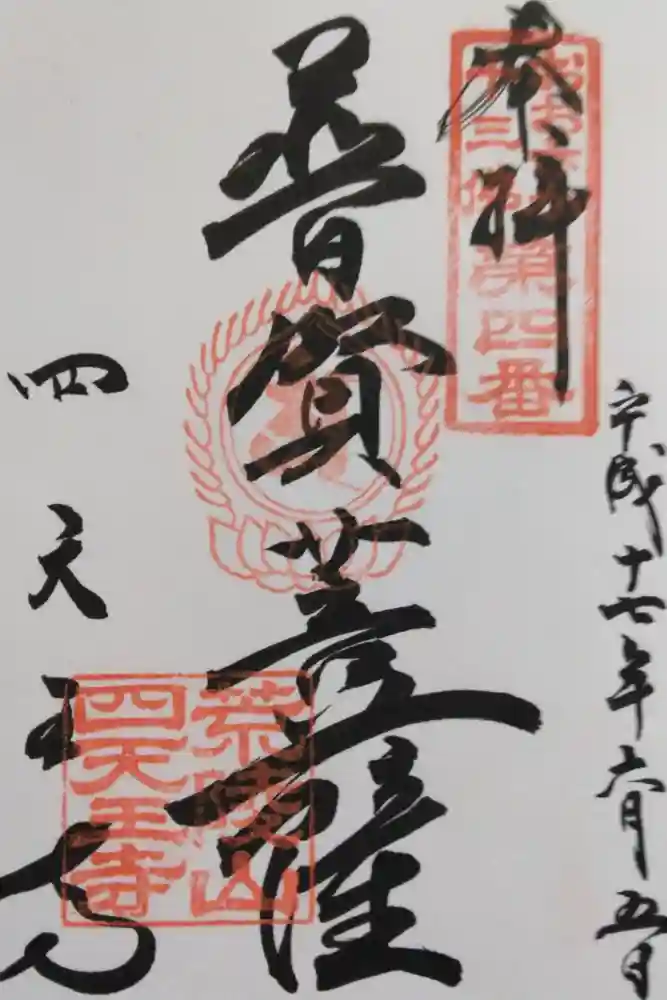 奉拝
おおさか
十三佛第四番
平成十七年六月五日
普賢菩薩
四天王寺
荒陵山
四天王寺